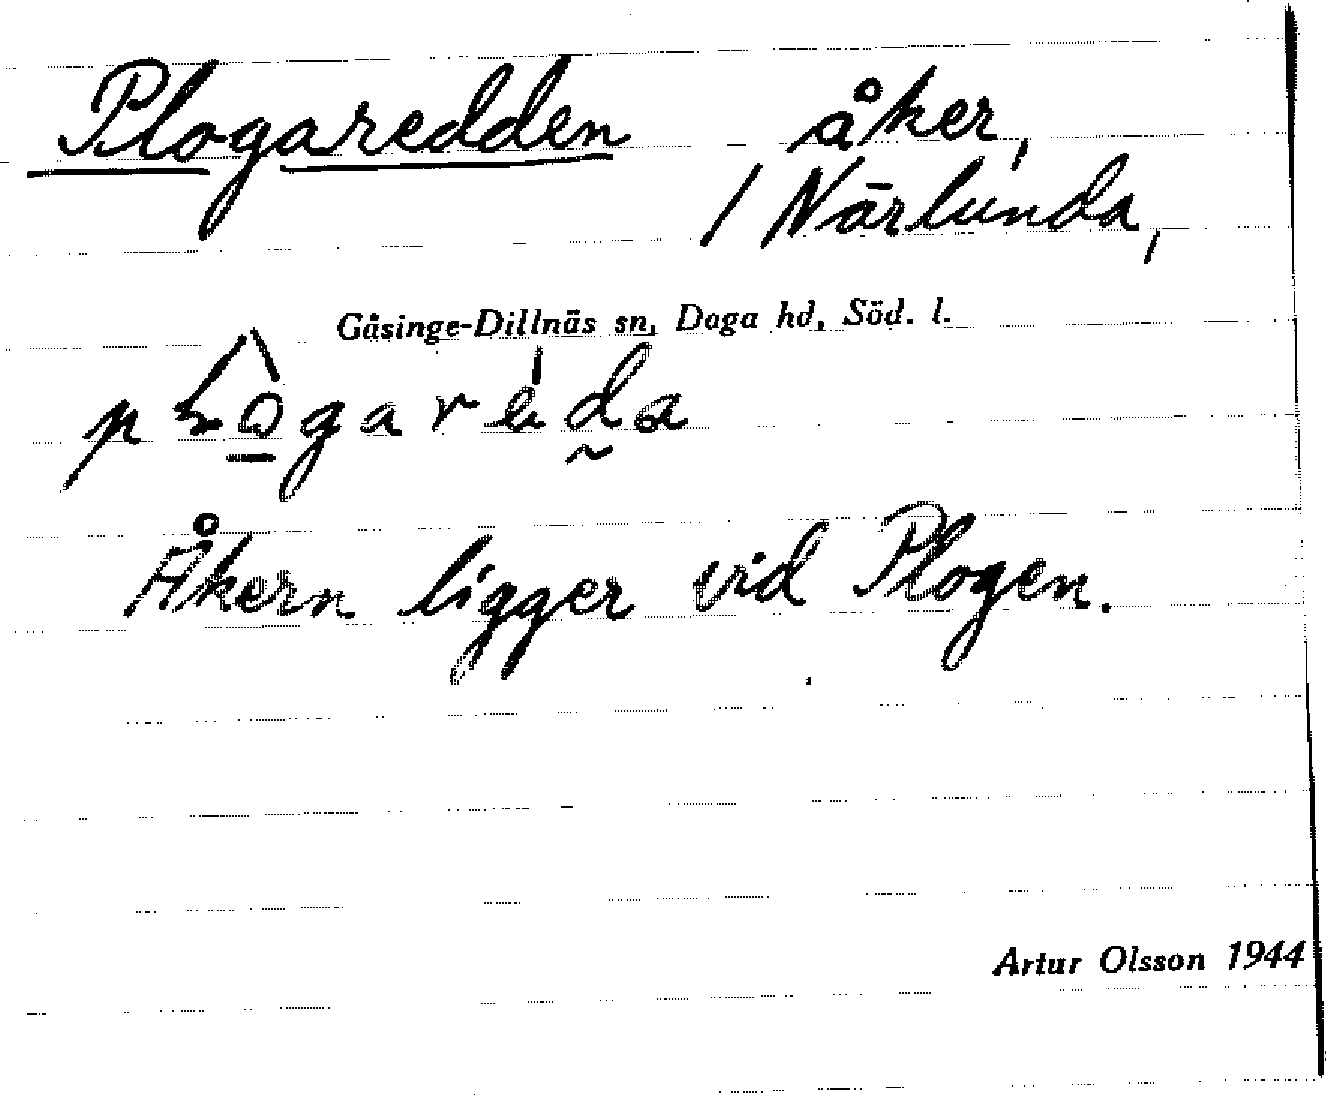 Plogaredden åker,
/ Närlunda,
Gåsinge-Dillnäs sn, Daga hd, Söd. l.
Åkern ligger vid Plogen.
Artur Olsson 1944